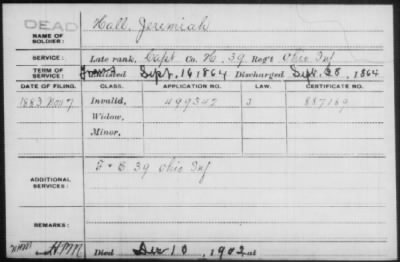 DEAD
NAME OF SOLDIER: Hall, Jeremiah
SERVICE: Late rank, Capt Co. H. 39 Reg't Ohio Inf
TERM OF SERVICE: Enlisted Sept. 16 1864 Discharged Sept. 28, 1864
DATE OF FILING. CLASS. APPLICATION NO. LAW. CERTIFICATE NO.
1883 Nov 7 Invalid, 499342 887189
Widow,
Minor,
ADDITIONAL SERVICES: F & S 39 Ohio Inf
REMARKS:
Died Dec 10, 1902 at